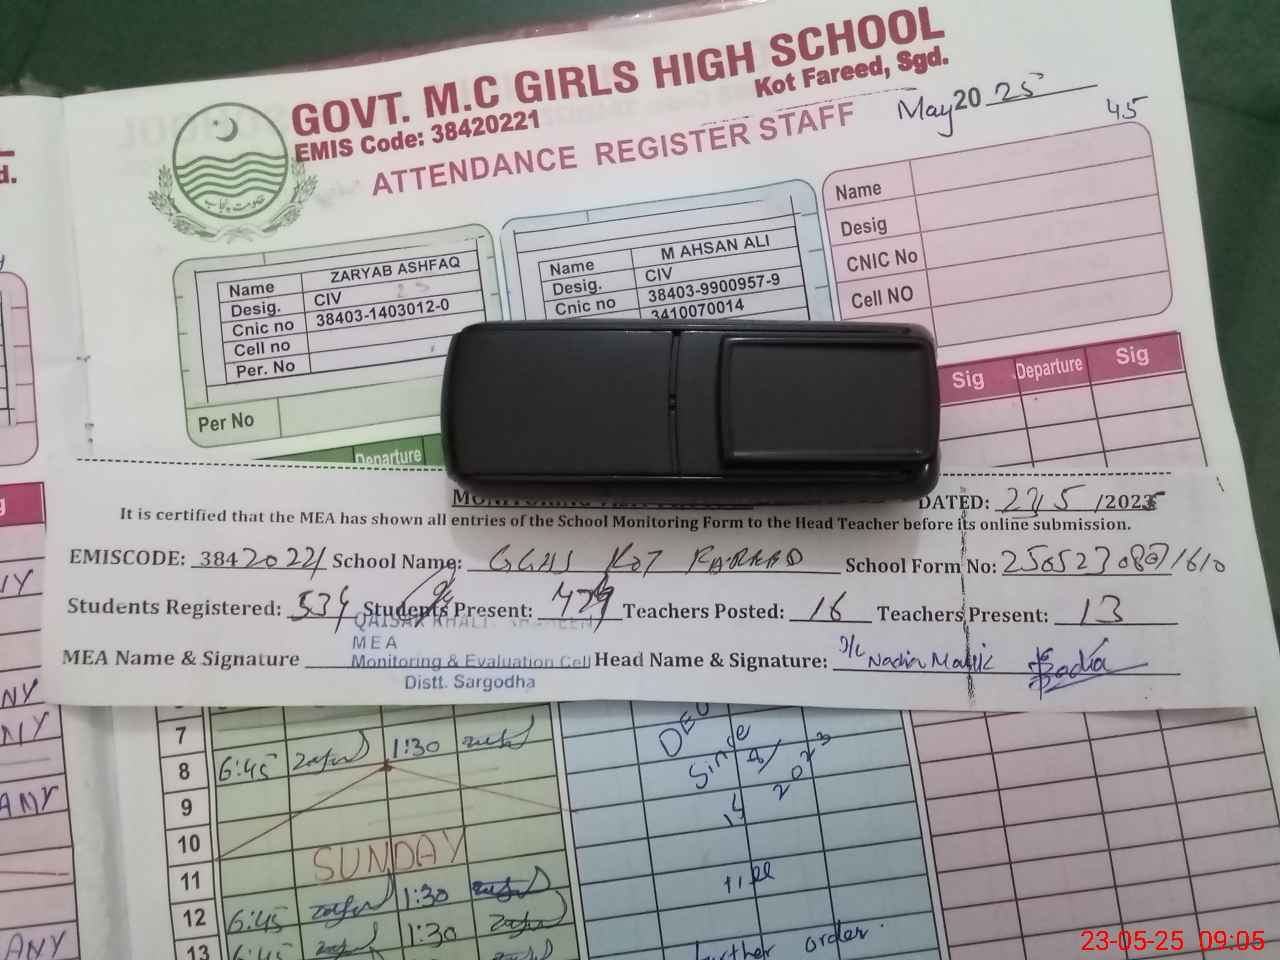 GOVT. M.C GIRLS HIGH SCHOOL
Kot Fareed, Sgd.
EMIS Code: 38420221
ATTENDANCE REGISTER STAFF
May 20 25
45
حکومت پنجاب
Name ZARYAB ASHFAQ
Desig. CIV
Cnic no 38403-1403012-0
Cell no
Per. No
Per No
Name M AHSAN ALI
Desig. CIV
Cnic no 38403-9900957-9
3410070014
Name
Desig
CNIC No
Cell NO
Departure
Sig Departure Sig
DATED: /2025
It is certified that the MEA has shown all entries of the School Monitoring Form to the Head Teacher before its online submission.
EMISCODE: 38420221 School Name: GGHS KOT FAREED School Form No:
Students Registered: 534 Students Present: Teachers Posted: 16 Teachers Present: 13
MEA
MEA Name & Signature Monitoring & Evaluation Cell Head Name & Signature: Nadia Malik Nadia
Distt. Sargodha
7
8 6:45 1:30
9
10
SUNDAY
11
12 6:45 1:30
13 6:45 1:30
Since
till
further order.
ANY
ANY
23-05-25 09:05